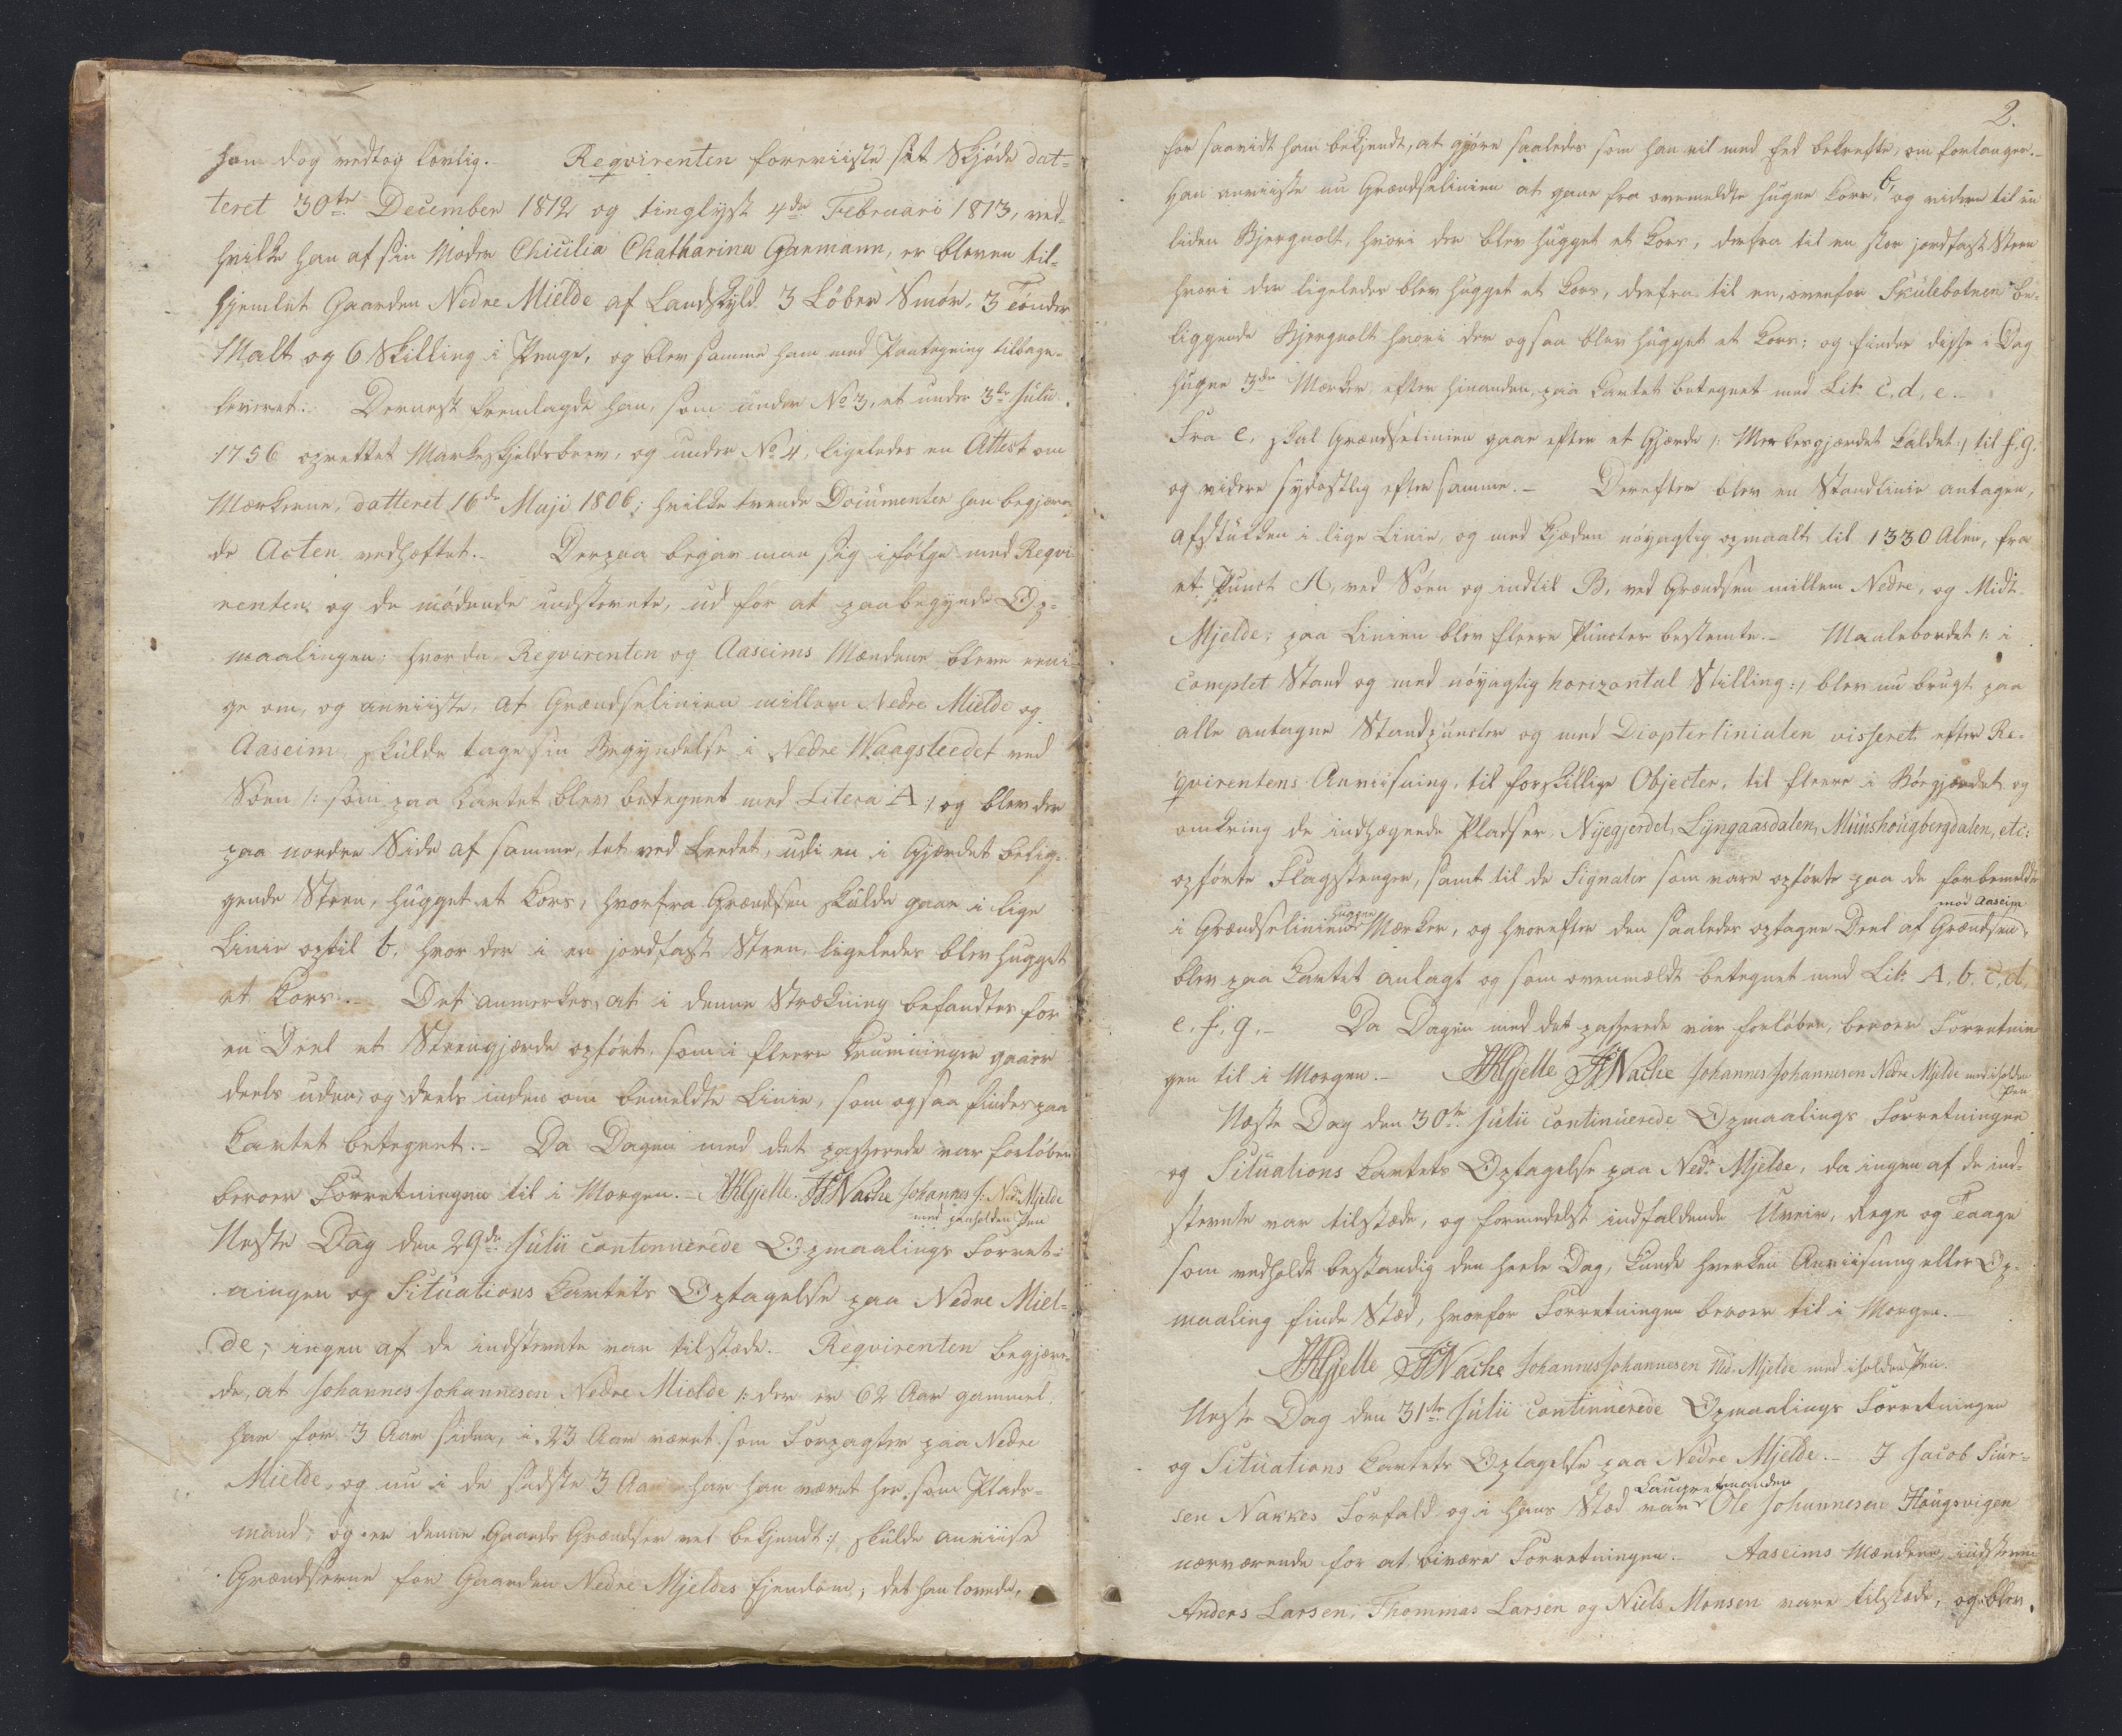 han dog vedtog lovlig. Reqvirenten foreviiste sit Skjøde dat-
teret 30te December 1812 og tinglyst 4de Februari 1813, ved
hvilke han af sin Moder Chicilia Chatharina Garmann, er bleven til-
hjemlet Gaarden Nedre Mielde af Landskyld 3 Løber Smør, 3 Tønder
Malt og 6 Skilling i Penge, og blev samme ham med Paategning tilbage-
leveret. Dernest fremlagde han, som under No 3, et under 3die Julii
1756 oprettet Markeskjeldsbrev, og under No 4, ligeledes en Attest om
Mærkerne, datteret 16de Maji 1806; hvilke tvende Documenter han begjære-
de Acten vedhæftet. Derpaa begav man sig ifølge med Reqvi-
renten og de mødende indstevnte, ud for at paabegynde Op-
maalingen; hvor da Reqvirenten og Aaseims Mændene bleve eeni-
ge om, og anviiste, at Grændselinien millem Nedre Mielde og
Aaseim skulde tage sin Begyndelse i Nedre Waagsleedet ved
Søen /: som paa Kartet blev betegnet med Litera A :/ og blev der
paa nordre Side af samme, tet ved Leedet, udi en i Gjærdet belig-
gende Steen, hugget et Kors, hvorfra Grændsen skulde gaae i lige
Linie optil b, hvor der i en jordfast Steen, ligeledes blev hugget
et Kors. Det anmerkes, at i denne Strækning befandtes for
en Deel et Steengjærde opført, som i fleere Krumninger gaaer
deels uden, og deels inden om bemeldte Linie, som ogsaa findes paa
Kartet betegnet. Da Dagen med det passerede var forløben
beroer Forretningen til i Morgen. AHjelle. JSNache Johannes J: Ned: Mjelde
med paaholden Pen
Neste Dag den 29de Julii continuerede Opmaalings Forret-
ningen og Situations Kartets Optagelse paa Nedre Miel-
de; ingen af de indstevnte var tilstæde. Reqvirenten begjære-
de, at Johannes Johannesen Nedre Mielde /: der er 62 Aar gammel,
har for 3 Aar siden, i 23 Aar været som Forpagter paa Nedre
Mielde, og nu i de sidste 3 Aar har han været her som Plads-
mand; og er denne Gaards Grændser vel bekjendt :/ skulde anviise
Grændserne for Gaarden Nedre Mjeldes Ejendom; det han lovede,
2.
for saavidt ham bekjendt, at gjøre saaledes som han vil med Eed bekrefte, om forlanges.
Han anviiste nu Grændselinien at gaae fra ovenmeldte hugne Kors b, og videre til en
liden Bjergnolt, hvori der blev hugget et Kors, derfra til en stor jordfast Steen
hvori der ligeledes blev hugget et Kors, derfra til en, ovenfor Skulebotnen be-
liggende Bjergnolt hvori der ogsaa blev hugget et Kors; og findes disse i Dag
hugne 3de Mærker, efter hinanden, paa Kartet betegnet med Litr c, d, e.
Fra e, skal Grændselinien gaae efter et Gjærde /: Merkesgjærdet kaldet :/ til f, g,
og videre sydostlig efter samme. Derefter blev en Standlinie antagen,
afstukken i lige Linie, og med Kjæden nøyagtig opmaalt til 1330 Alen, fra
et Punct A, ved Søen og indtil B, ved Grændsen millem Nedre, og Midt-
Mjelde; paa Linien blev fleere Puncter bestemte. Maalebordet /: i
complet Stand og med nøyagtig horizontal Stilling :/ blev nu brugt paa
alle antagne Standpuncter og med Diopterlinialen visseret efter Re-
qvirentens Anviisning, til forskillige Objecter, til fleere i Bøegjærdet og
omkring de indhægnede Pladser, Nyegjerdet, Lyngaasdalen, Muunshougbergdalen, etc:
opførte Flagstenger, samt til de Signaler som vare opførte paa de forbemeldte
mod Aaseim
i Grændselinien hugne Mærker, og hvorefter den saaledes optagne Deel af Grændsen,
blev paa Kartet anlagt og som ovenmældt betegnet med Litr A, b, c, d,
e, f, g, Da Dagen med det passerede var forløben, beroer Forretnin-
gen til i Morgen. AHjelle JSNache Johannes Johannesen Nedre Mjelde med iholden
Pen
Næste Dag den 30te Julii continuerede Opmaalings Forretningen
og Situations Kartets Optagelse paa Nedr: Mjelde, da ingen af de ind-
stevnte var tilstæde, og formedelst indfaldende Uveir, Regn og Taage
som vedholdt bestandig den heele Dag, kunde hverken Anviisning eller Op-
maaling finde Stæd, hvorfor Forretningen beroer til i Morgen.
AHjelle JSNache Johannes Johannesen Nd. Mjelde med iholden Pen.
Neste Dag den 31te Julii continuerede Opmaalings Forretningen
og Situations Kartets Optagelse paa Nedre Mjelde. I Jacob Siur-
sen Nakkes Forfald og i hans Stæd var Laugretmanden Ole Johannesen Hougsvigen
nærværende for at bivære Forretningen. Aaseims Mændene, indstevnte
Anders Larsen, Thommas Larsen og Niels Monsen vare tilstæde, og blev